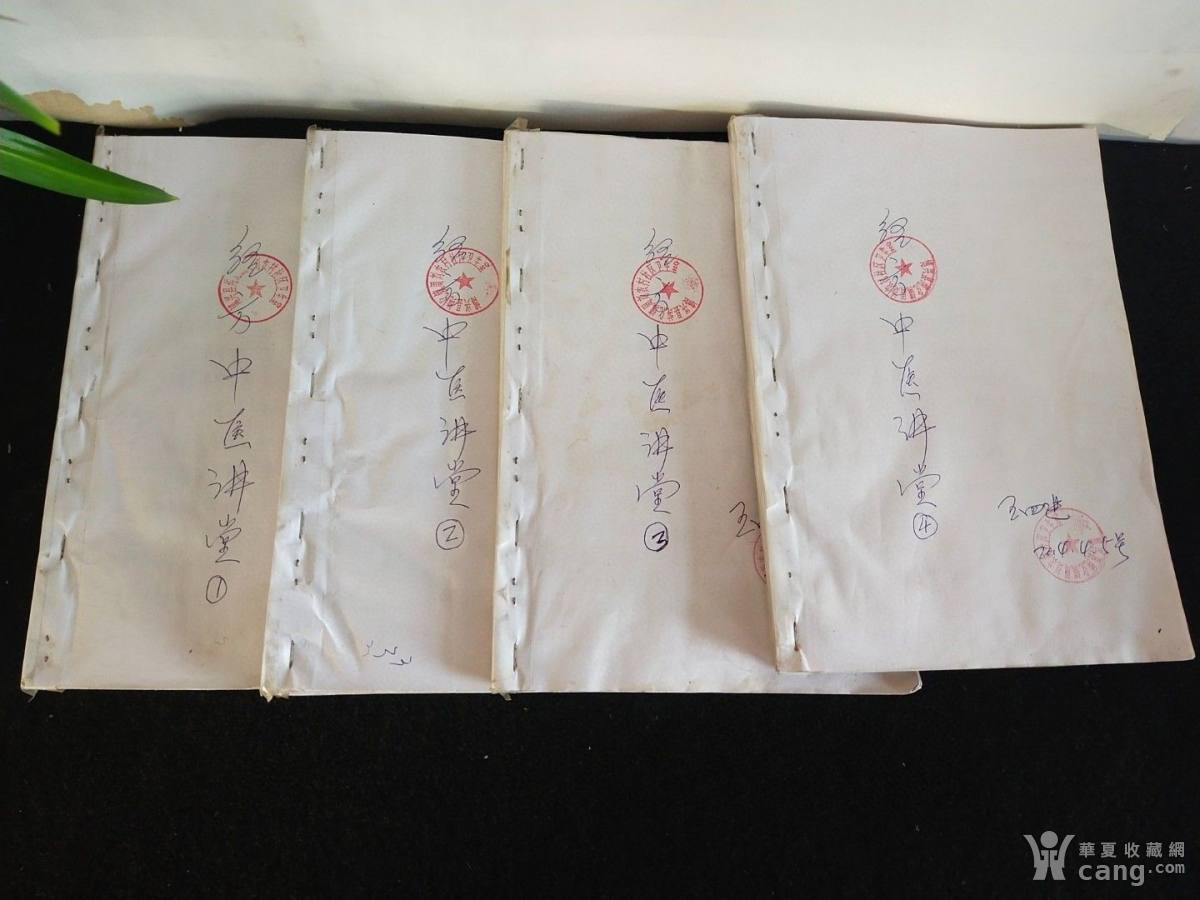 经方中医讲堂①
经方中医讲堂②
经方中医讲堂③
王
经方中医讲堂④
王四进
4.4.5号
華夏收藏網
cang.com